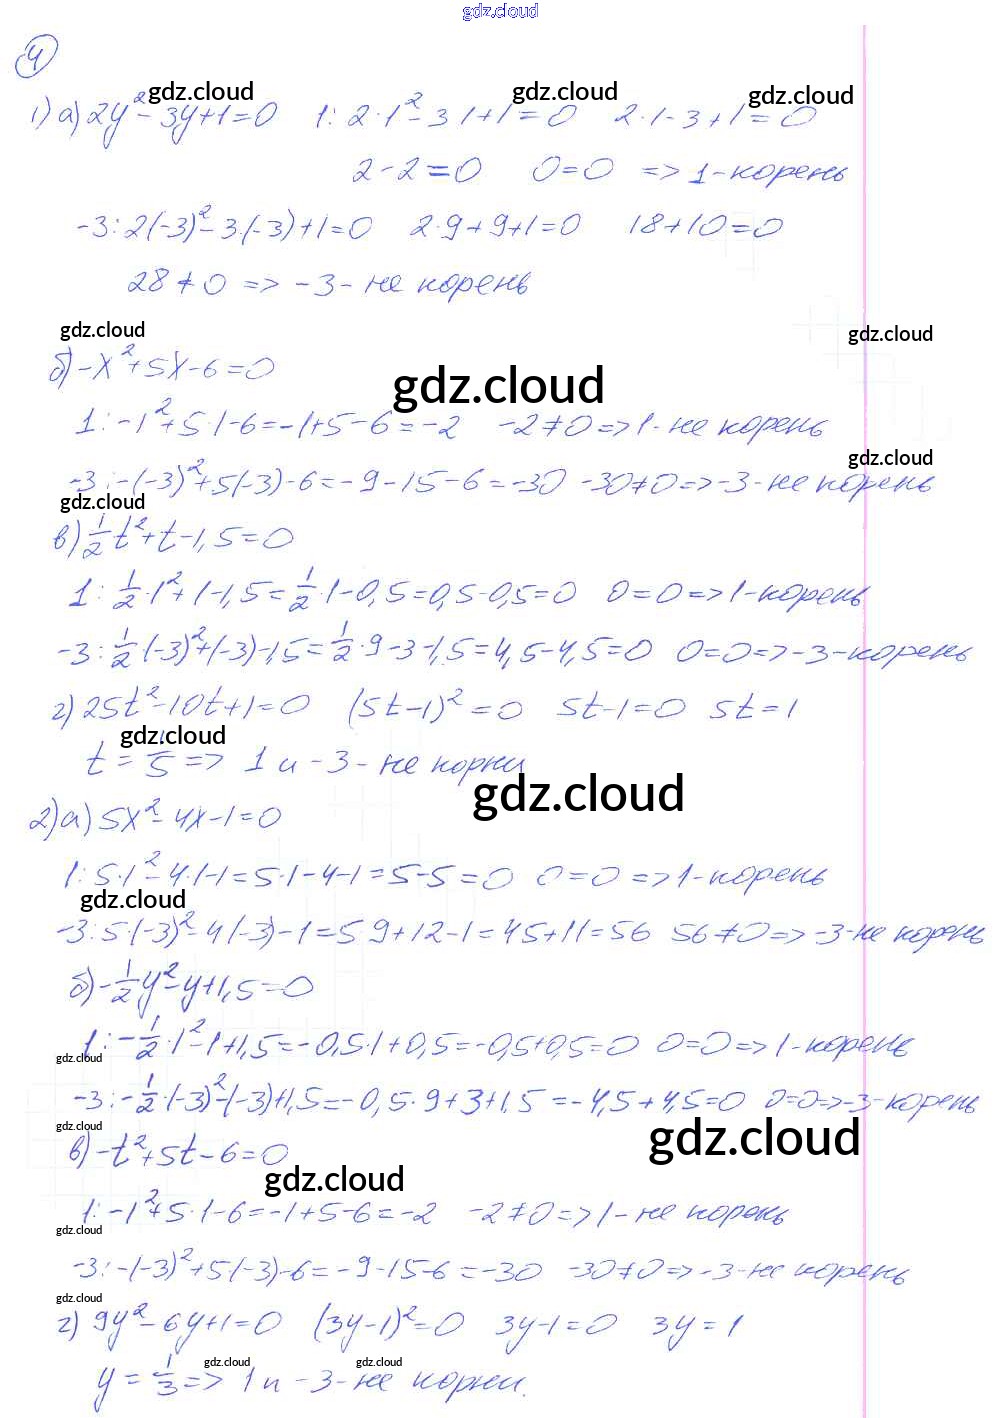 gdz.cloud
4
gdz.cloud gdz.cloud gdz.cloud
1) а) 2y² - 3y + 1 = 0 1: 2·1² - 3·1 + 1 = 0 2·1 - 3 + 1 = 0
2 - 2 = 0 0 = 0 => 1 - корень
-3: 2(-3)² - 3·(-3) + 1 = 0 2·9 + 9 + 1 = 0 18 + 10 = 0
28 ≠ 0 => -3 - не корень
gdz.cloud gdz.cloud
б) -x² + 5x - 6 = 0
gdz.cloud
1: -1² + 5·1 - 6 = -1 + 5 - 6 = -2 -2 ≠ 0 => 1 - не корень
gdz.cloud
-3: -(-3)² + 5(-3) - 6 = -9 - 15 - 6 = -30 -30 ≠ 0 => -3 - не корень
gdz.cloud
в) 1/2 t² + t - 1,5 = 0
1: 1/2·1² + 1 - 1,5 = 1/2·1 - 0,5 = 0,5 - 0,5 = 0 0 = 0 => 1 - корень
-3: 1/2·(-3)² + (-3) - 1,5 = 1/2·9 - 3 - 1,5 = 4,5 - 4,5 = 0 0 = 0 => -3 - корень
г) 25t² - 10t + 1 = 0 (5t - 1)² = 0 5t - 1 = 0 5t = 1
gdz.cloud
t = 1/5 => 1 и -3 - не корни
gdz.cloud
2) а) 5x² - 4x - 1 = 0
1: 5·1² - 4·1 - 1 = 5·1 - 4 - 1 = 5 - 5 = 0 0 = 0 => 1 - корень
gdz.cloud
-3: 5·(-3)² - 4(-3) - 1 = 5·9 + 12 - 1 = 45 + 11 = 56 56 ≠ 0 => -3 - не корень
б) -1/2 y² - y + 1,5 = 0
1: -1/2·1² - 1 + 1,5 = -0,5·1 + 0,5 = -0,5 + 0,5 = 0 0 = 0 => 1 - корень
gdz.cloud
-3: -1/2·(-3)² - (-3) + 1,5 = -0,5·9 + 3 + 1,5 = -4,5 + 4,5 = 0 0 = 0 => -3 - корень
gdz.cloud gdz.cloud
в) -t² + 5t - 6 = 0
gdz.cloud
1: -1² + 5·1 - 6 = -1 + 5 - 6 = -2 -2 ≠ 0 => 1 - не корень
gdz.cloud
-3: -(-3)² + 5·(-3) - 6 = -9 - 15 - 6 = -30 -30 ≠ 0 => -3 - не корень
gdz.cloud
г) 9y² - 6y + 1 = 0 (3y - 1)² = 0 3y - 1 = 0 3y = 1
gdz.cloud gdz.cloud
y = 1/3 => 1 и -3 - не корни.